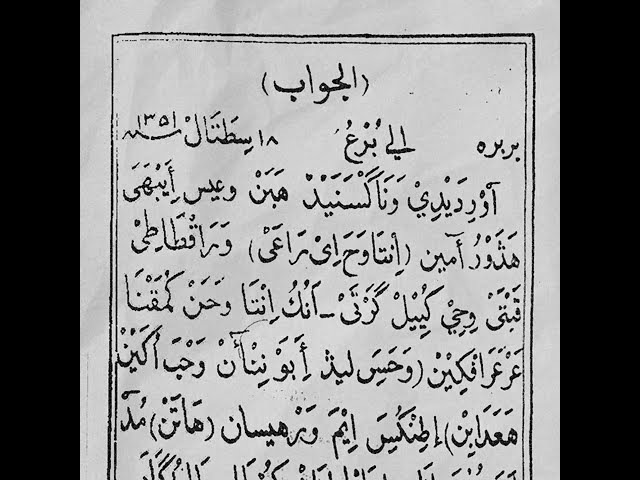 (الجواب)
بربره إلي بُرْعُ ١٨ سِطَتَالْ سنة ١٣٥١
آوْرِدَيْدِيْ وَنَاگْسَنَيْدْ هَبَنْ وعِيس أَيْبَهَىَ
هَدَوْرُ آمِين (اِنْتَا وَحَ اِىْ رَاعَىْ) وَرَاقُطَاطِىْ
قَبْتَىْ وِحِيْ كَيِيْلْ گَرْتَىْ - اَنُكُ اِنْتَا وَحَنْ كُمَقْنَا
عَرْعَرَافِكِيْنْ (وَحَسِ لِيدْ أَبَوْ نِنْأَنْ وَحْبَ اُكَيْنْ
هَعَدَايْنْ) إِطِنْكَسِ اِيْمَ وَرْهِيسان (هَاتَنْ) مُدْ